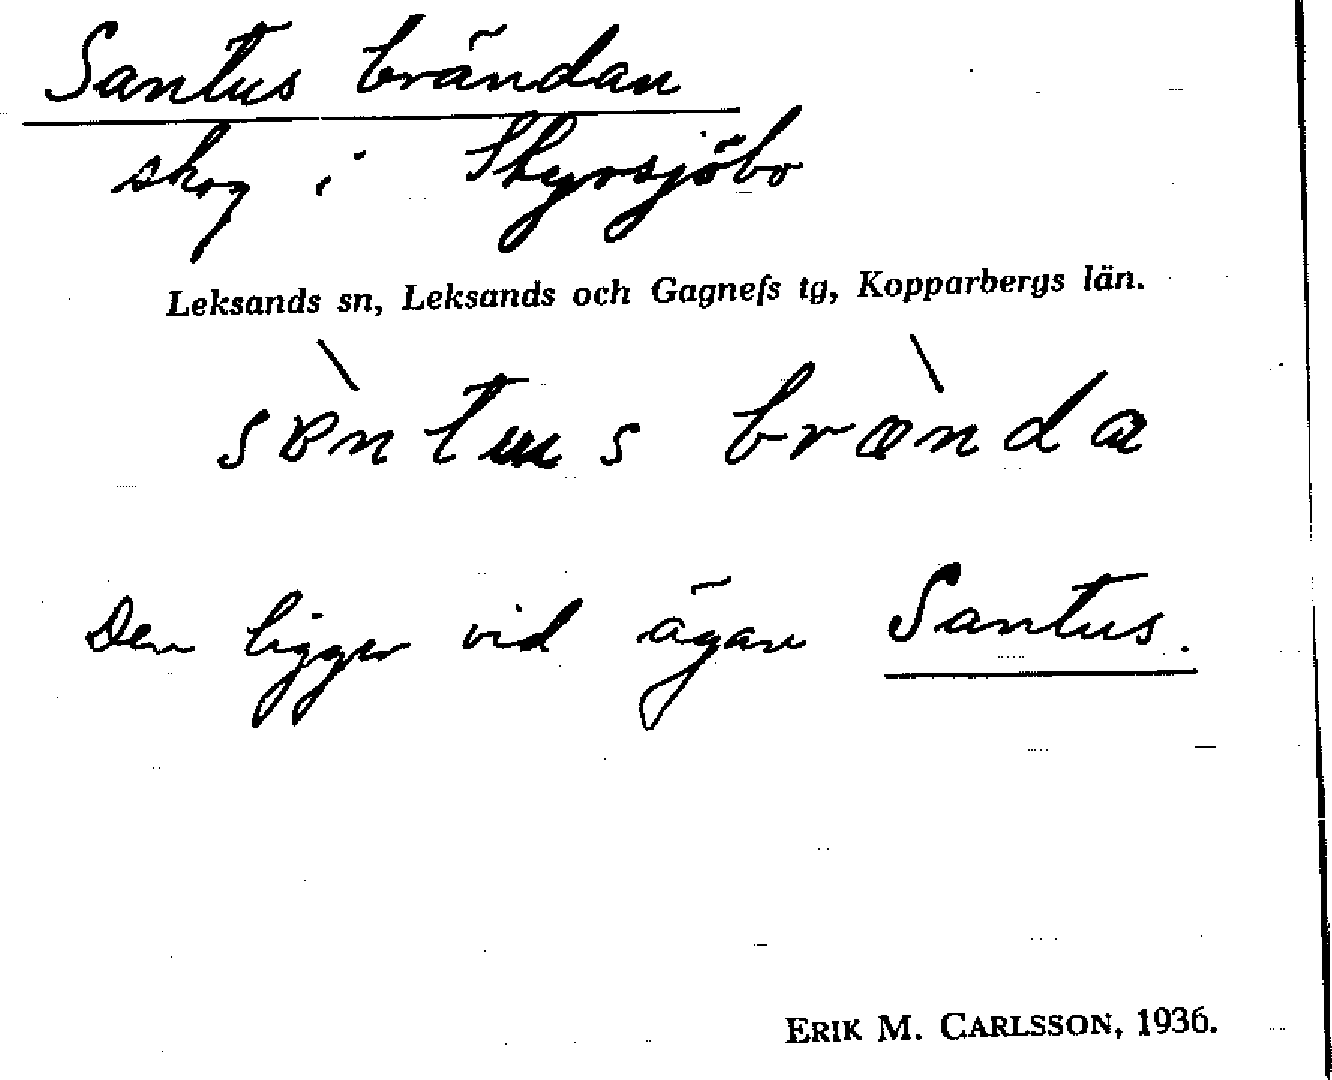 Santus brändan
skog i Styrsjöbo
Leksands sn, Leksands och Gagnefs tg, Kopparbergs län.
brænda
Den ligger vid ägan Santus.
ERIK M. CARLSSON, 1936.